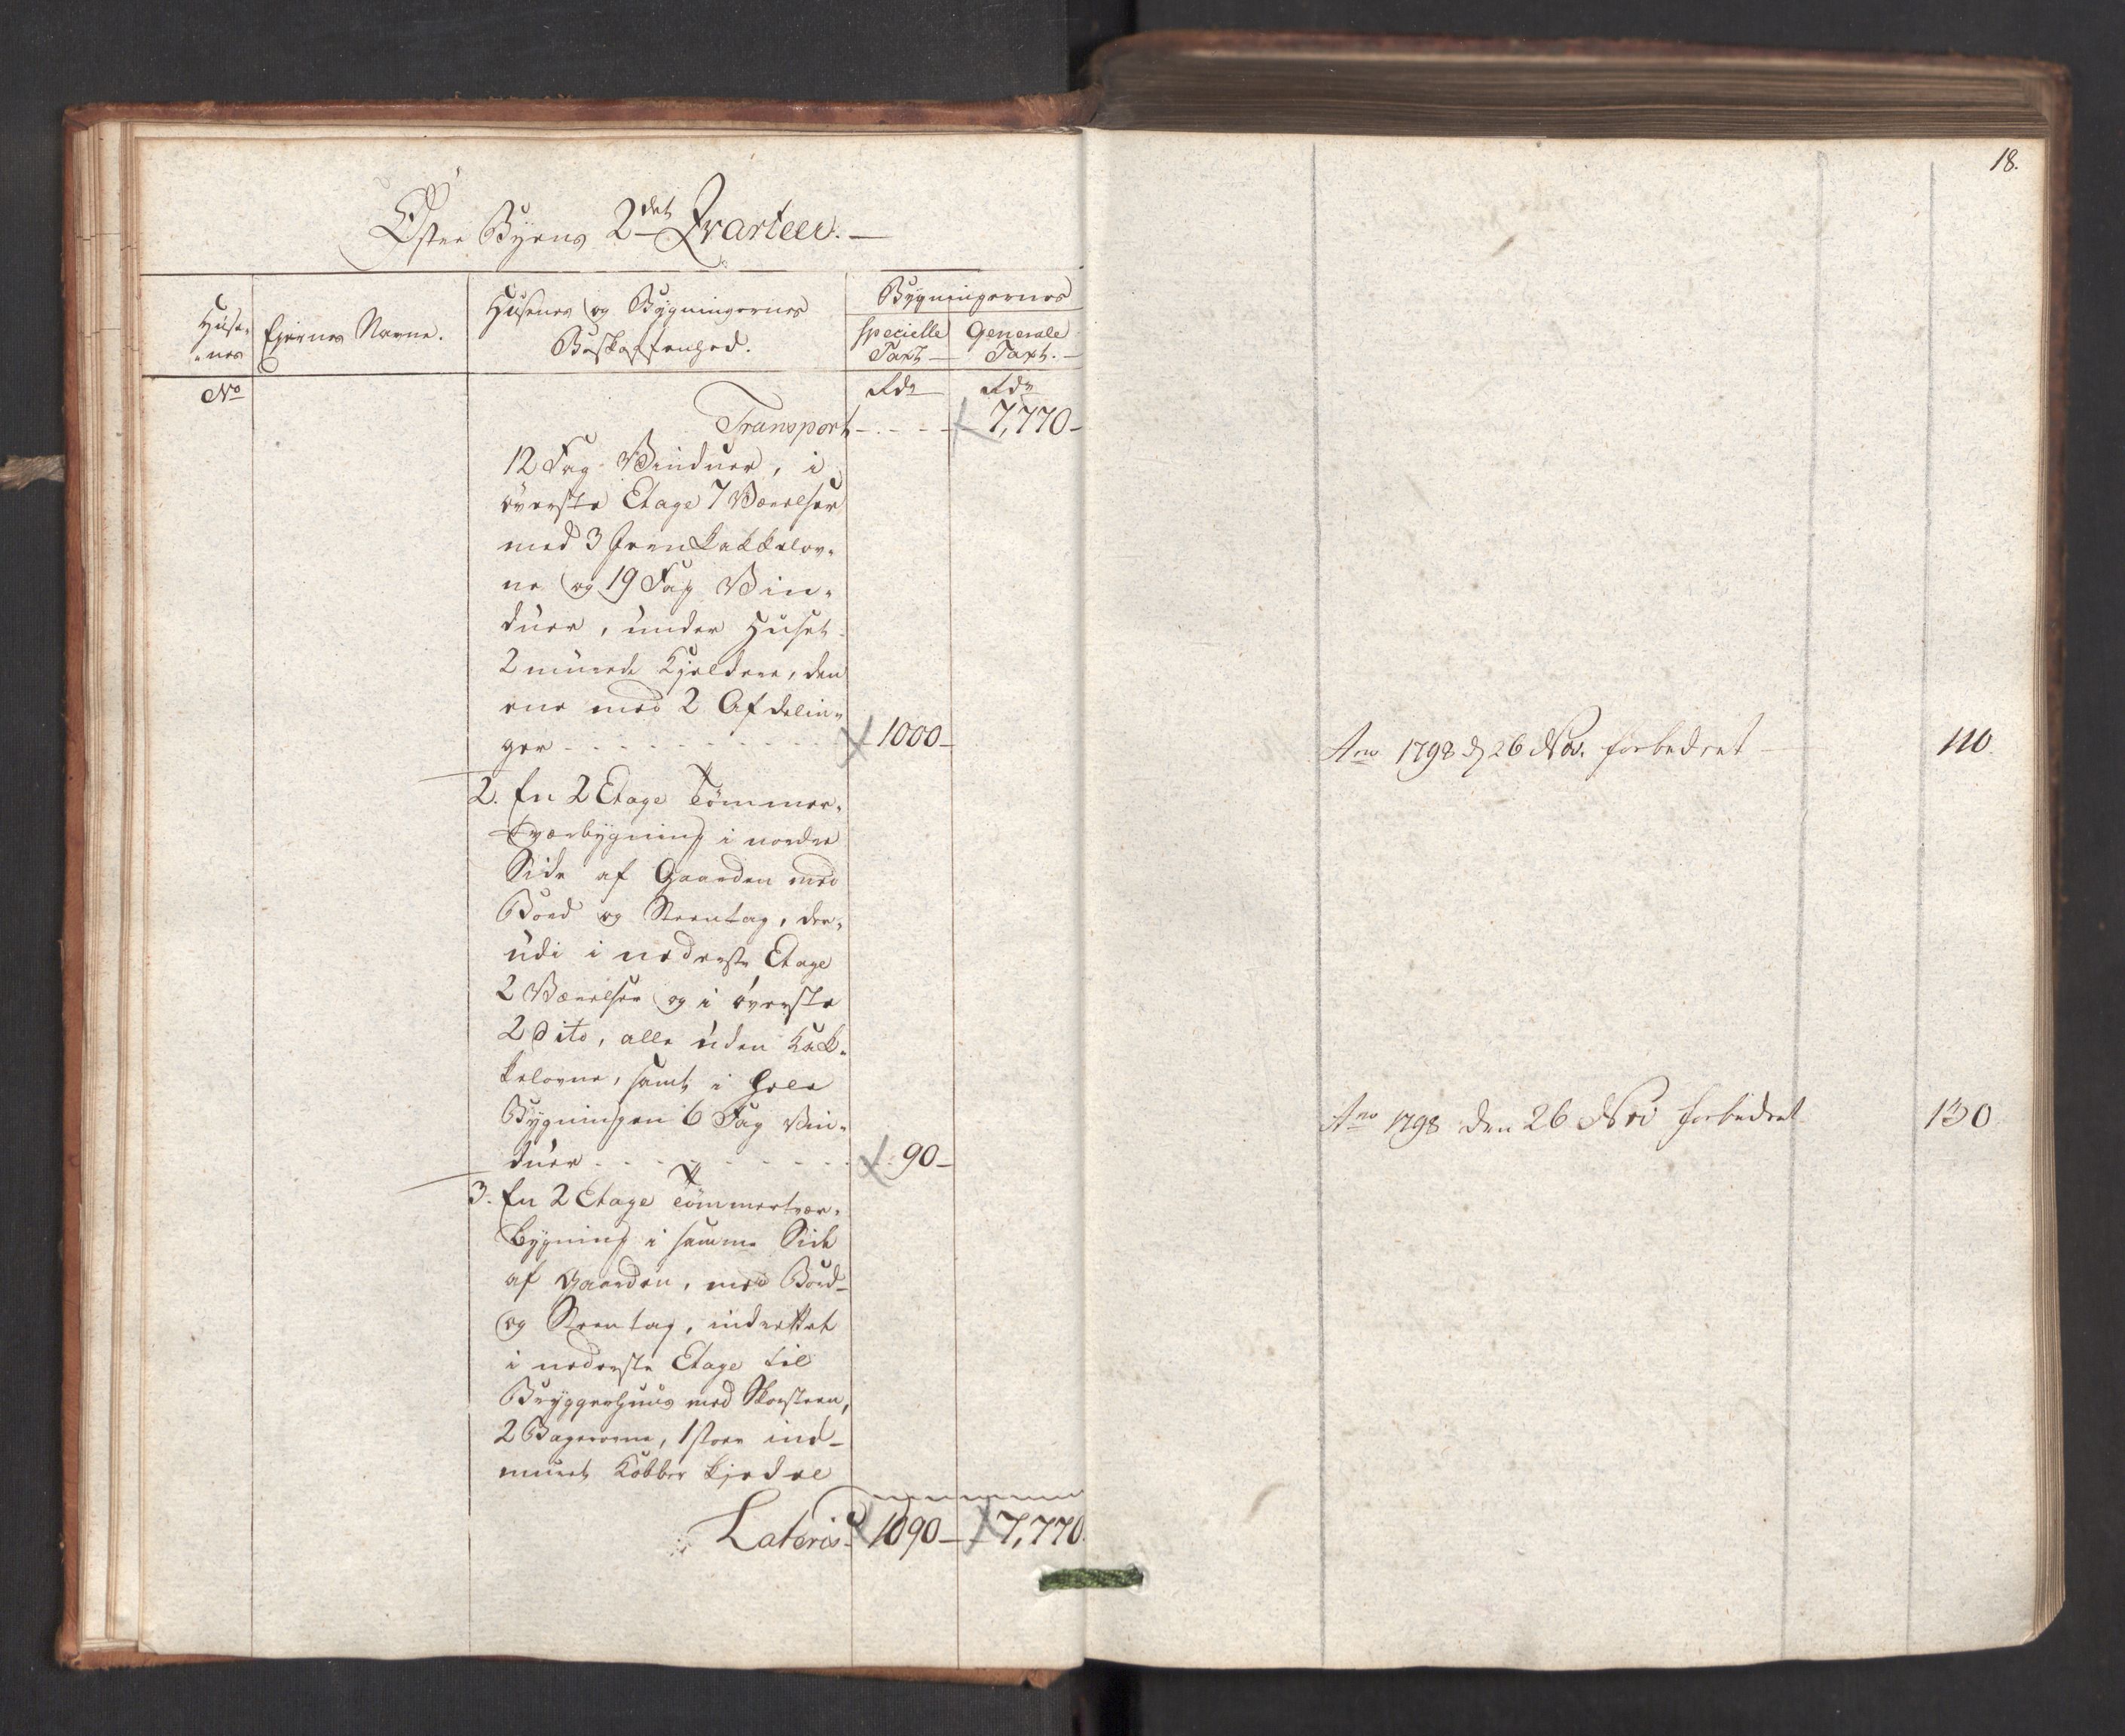 Øster Byens 2det Qvarteer.
Huse-
nes
Ejernes Navne.
Husenes og Bygningernes
Beskaffenhed.
Bygningernes
specielle
Taxt
Generale
Taxt.
No
Rdr
Rdr
Transport - - - - 7,770-
12 Fag Vinduer, i
øverste Etage 7 Værelser
med 3 Jern Kakkelov-
ne og 19 Fag Vin-
duer, under Huset
2 murede Kjeldere, den
ene med 2 Afdelin-
ger - - - - - 1000-
2. En 2 Etage Tømmer-
tværbygning i nordre
Side af Gaarden med
Bord og Steentag, der-
udi i nederste Etage
2 Værelser og i øverste
2 Dito, alle uden Kak-
kelovne, samt i hele
Bygningen 6 Fag Vin-
duer - - - - - 90-
3. En 2 Etage Tømmertvær-
bygning i samme Side
af Gaarden, med Bord-
og Steentag, indrettet
i nederste Etage til
Bryggerhuus med Skorsteen,
2 Bagerovne, 1 stoer ind-
muret Kobber Kjedel
Lateris 1090- 7,770.
18.
Ano 1798 d 26 Nov. forbedret - 110.
Ano 1798 den 26 Nov forbedret 130